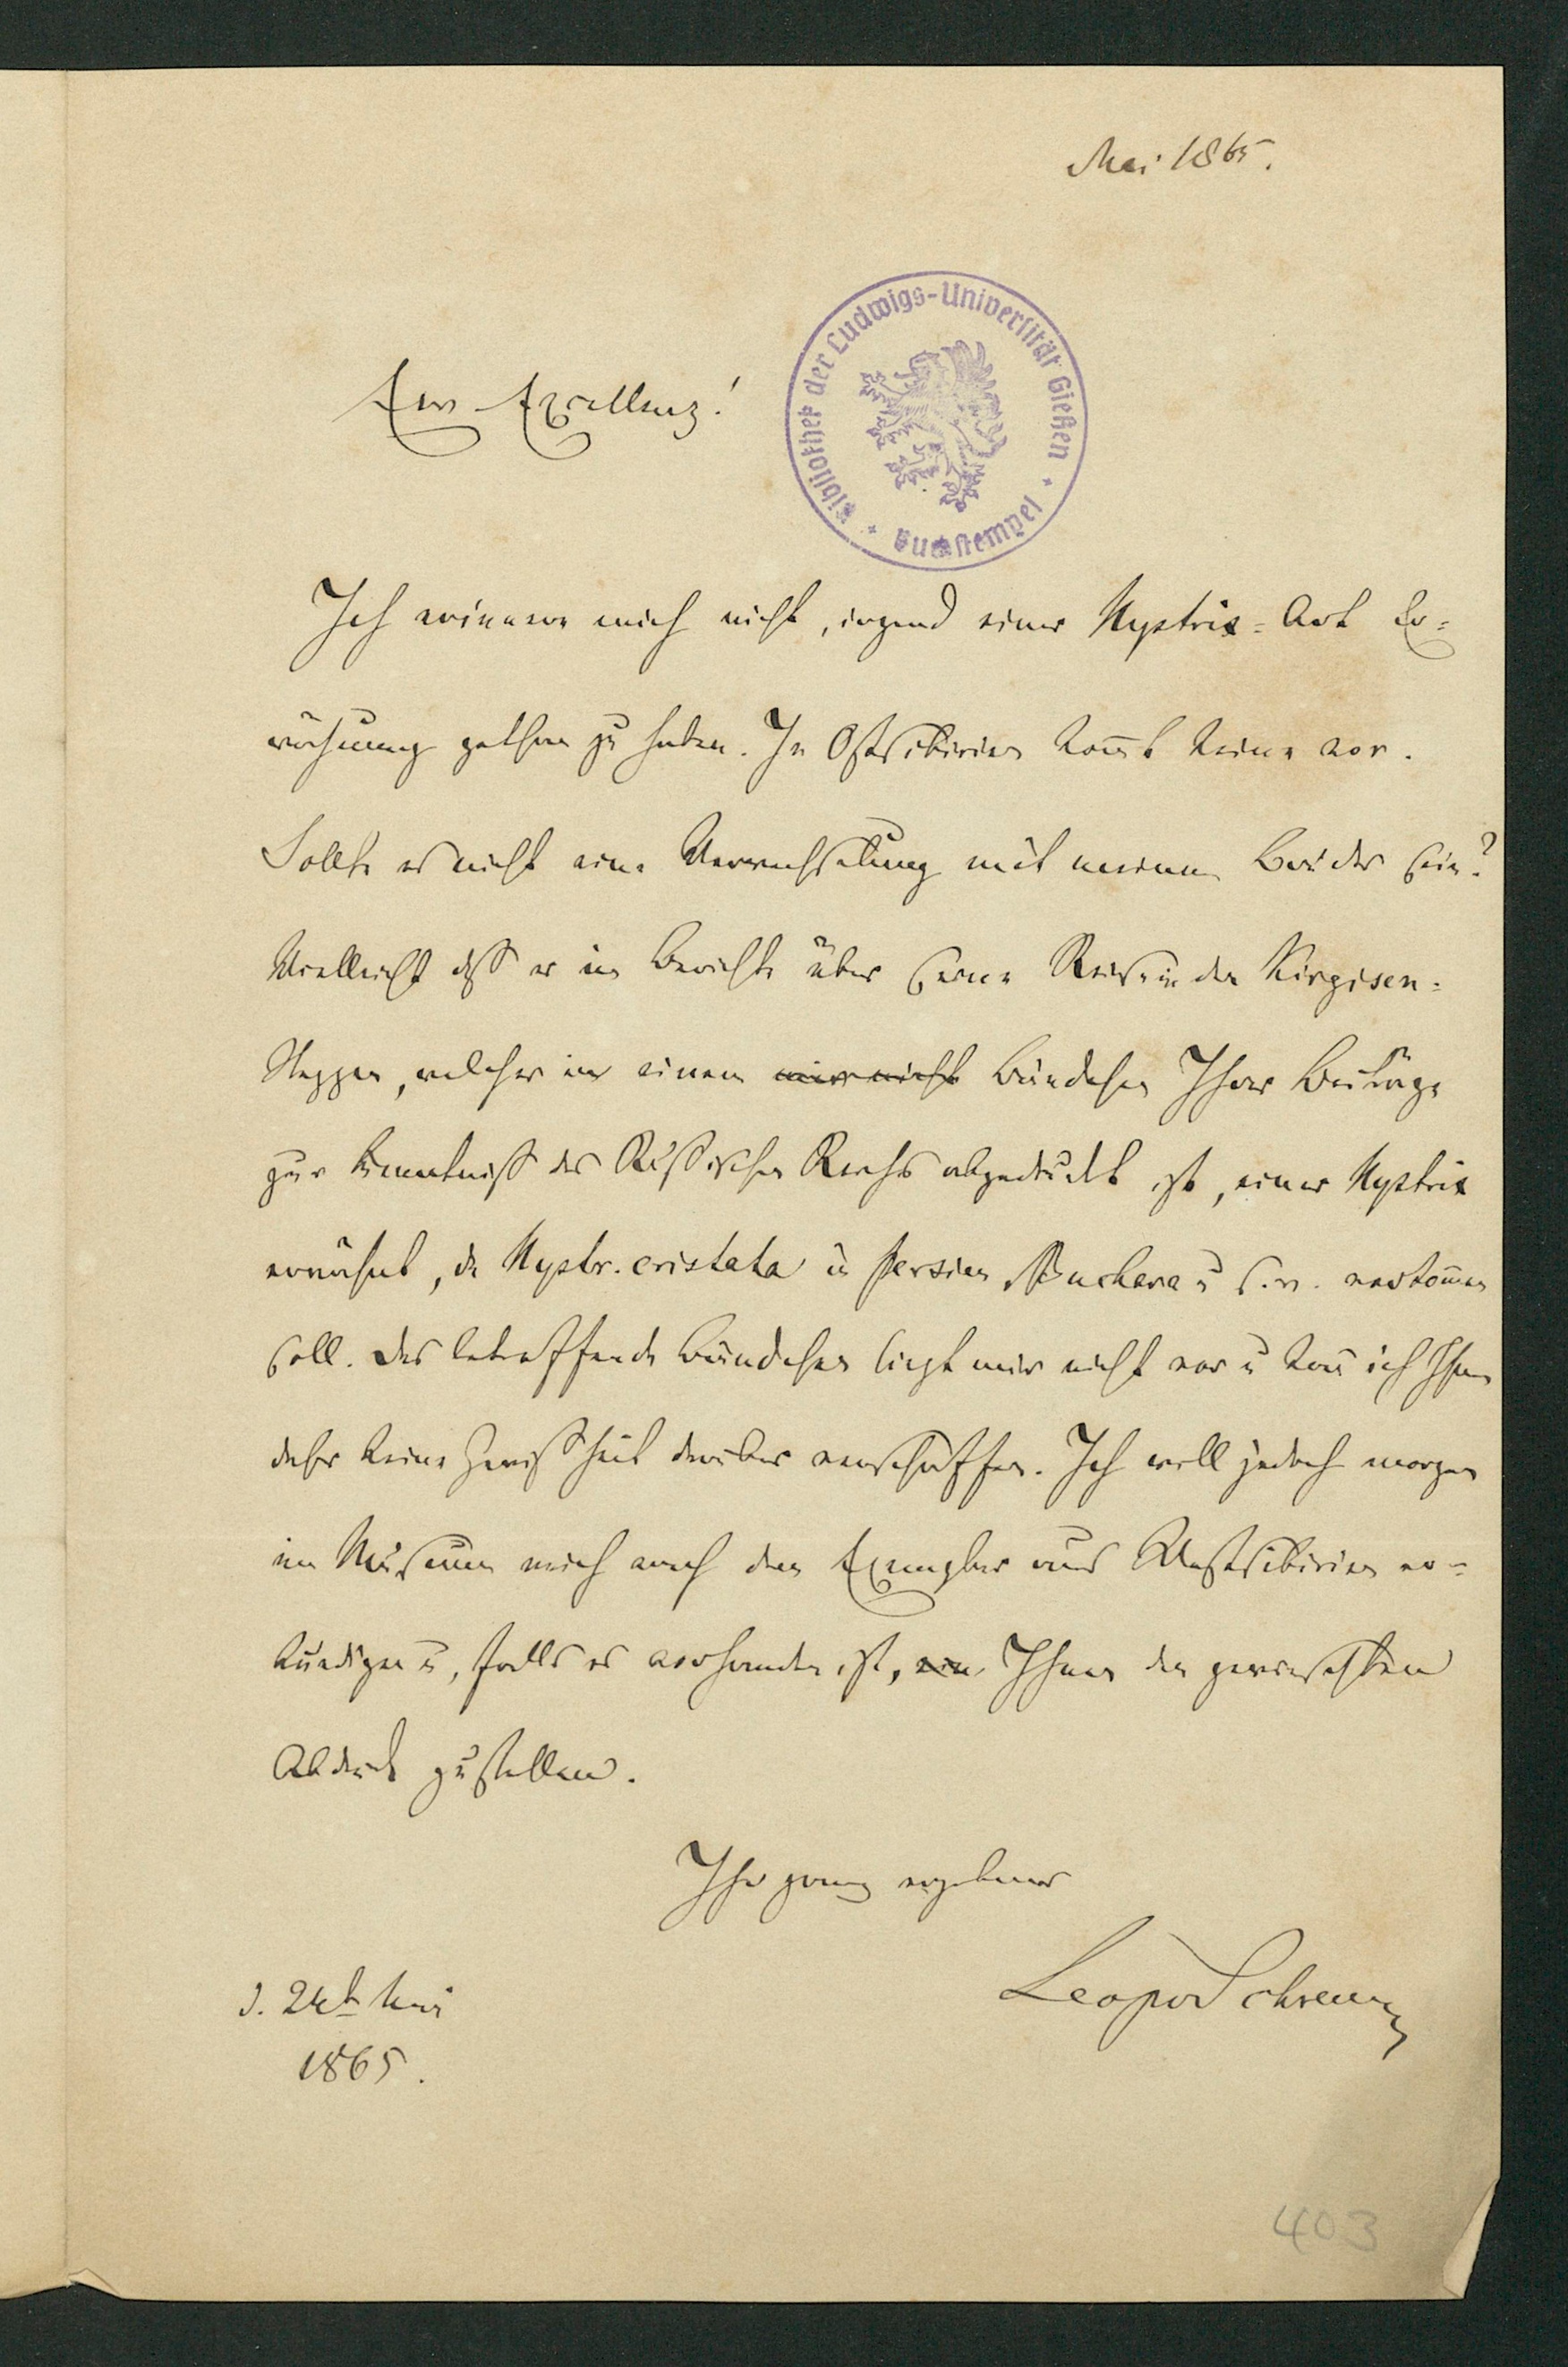 Mai 1865.
Bibliothek der Ludwigs-Universität Gießen
Buchstempel
Ew. Excellenz!
Ich erinnere mich nicht, irgend einer Hystrix-Art Er-
wähnung gethan zu haben. In Ostsibirien kom̄t keine vor.
Sollte es nicht eine Verwechselung mit meinem Bruder sein?
Vielleicht dass er im Berichte über seine Reise in den Kirgisen-
Steppen, welcher in einem mir nicht Bändchen Ihrer Beiträge
zur Kenntniss des Russischen Reichs abgedruckt ist, einer Hystrix
erwähnt, da Hystr. cristata in Persien, Buchara u. s. w. vorkom̄en
soll. Das betreffende Bändchen liegt mir nicht vor u kan̄ ich Ihnen
daher keine Gewissheit darüber verschaffen. Ich will jedoch morgen
im Museum mich nach dem Exemplar aus Westsibirien er-
kundigen u, falls es vorhanden ist, Ihnen den gewünschten
Abdruck zustellen.
Ihr ganz ergebener
Leopold Schrenck
d. 24t Mai
1865.
403